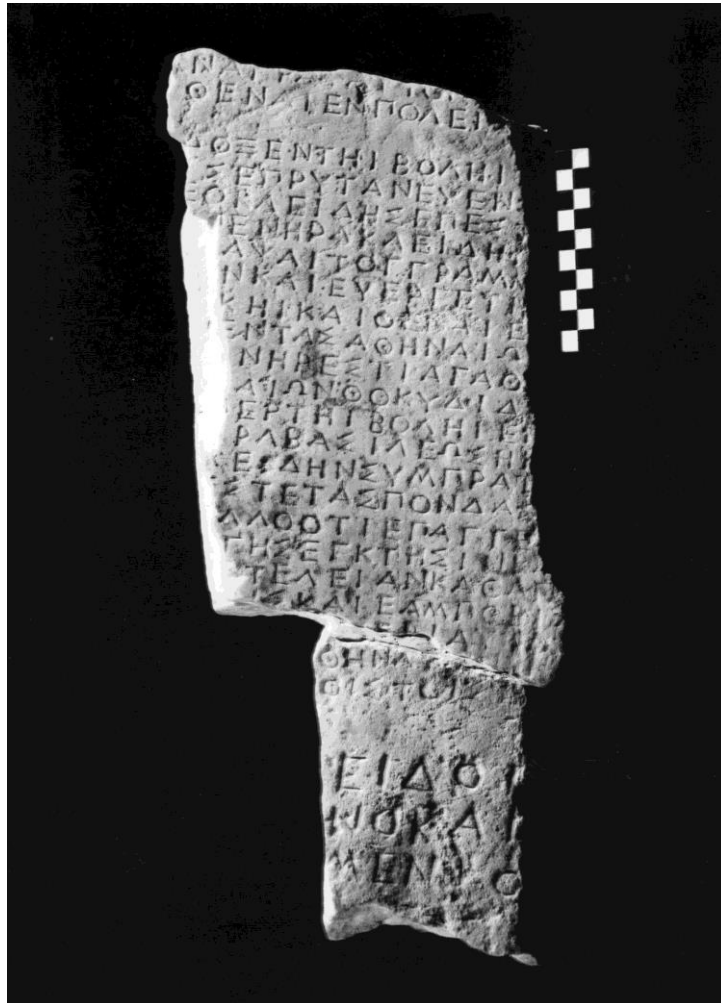 ΘΕΝΑΙΕΝΠΟΛΕΙ
ΔΟΞΕΝΤΗΙΒΟΛΗΙ
ΣΕΠΡΥΤΑΝΕΥΕΝ
ΕΟΚΛΕΙΔΗΣΕΠΕΣ
ΙΕΝΗΡΑΚΛΕΙΔΗ
ΑΨΑΙΤΟΓΓΡΑΜΜ
ΝΚΑΙΕΥΕΡΓΕΤ
ΣΗΙΚΑΙΟΣΔΑΙΕ
ΕΝΤΑΣΑΘΗΝΑΙΩ
ΝΗΡΕΣΓΙΑΓΑΘ
ΑΙΩΝΘΟΚΥΔΙΔ
ΕΡΤΗΙΒΟΛΗΙΕ
ΡΑΒΑΣΙΛΕΩΣΗ
ΕΣΔΗΝΣΥΜΠΡΑ
ΣΤΕΤΑΣΠΟΝΔΑ
ΑΛΛΟΟΤΙΕΠΑΓΓΕ
ΓΗΣΕΓΚΤΗΣΙ
ΤΕΛΕΙΑΝΚΑΘΑΠ
ΣΚΑΙΕΑΜΠΟ
ΘΗΝΑ
ΟΙΣΤΟΙΣ
ΕΙΔΟ
ΟΚΛ
ΜΕΝΙΟ